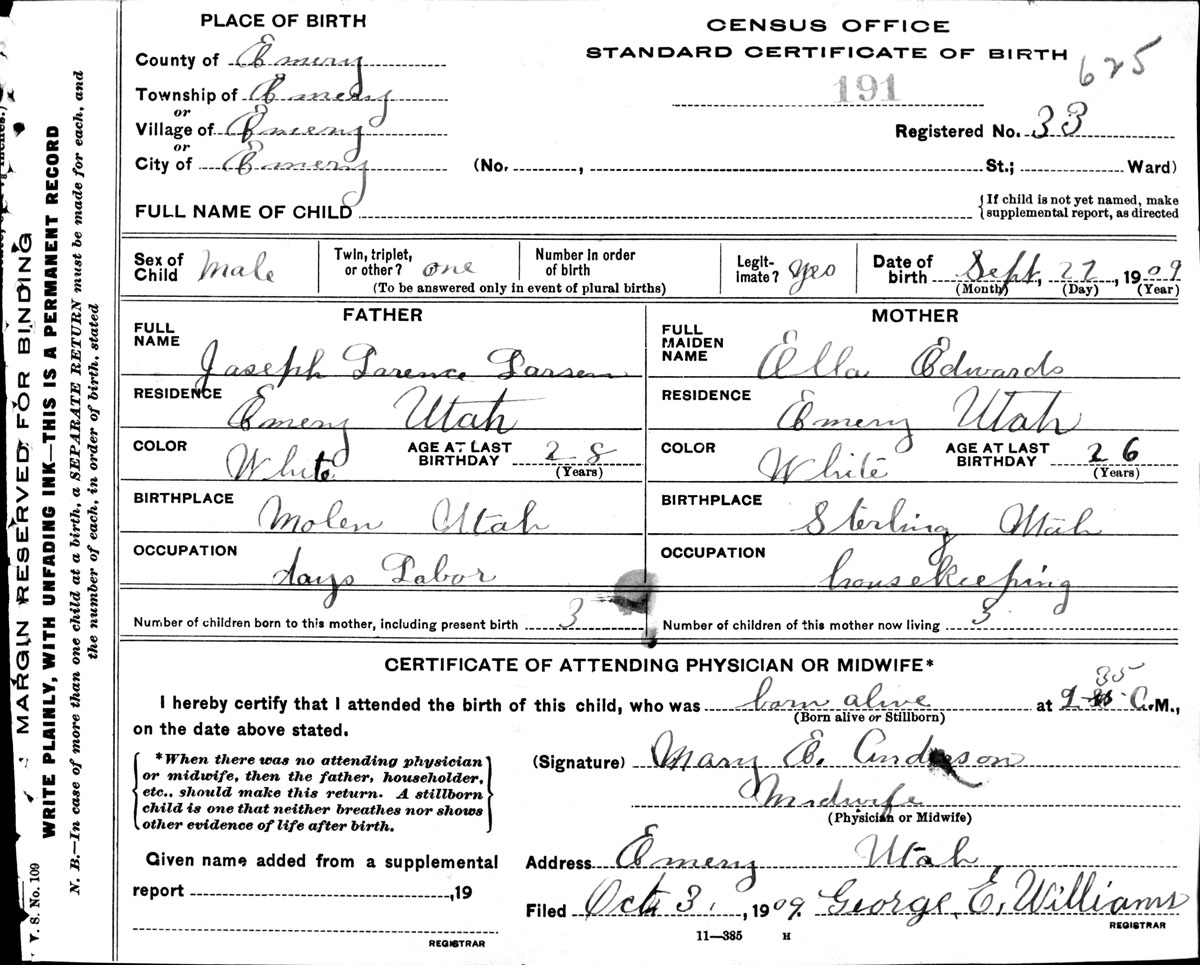 PLACE OF BIRTH
County of Emery
Township of Emery
or
Village of Emery
or
City of Emery
CENSUS OFFICE
STANDARD CERTIFICATE OF BIRTH
625
191
Registered No. 33
(No. , St.; Ward)
FULL NAME OF CHILD
{If child is not yet named, make
{supplemental report, as directed
Sex of Child Male
Twin, triplet, or other? one
Number in order of birth
(To be answered only in event of plural births)
Legitimate? yes
Date of birth Sept, 27, 1909
(Month) (Day) (Year)
FATHER
FULL NAME
Joseph Larence Larsen
RESIDENCE
Emery Utah
COLOR White
AGE AT LAST BIRTHDAY 28
(Years)
BIRTHPLACE
Molen Utah
OCCUPATION
days Labor
MOTHER
FULL MAIDEN NAME
Ella Edwards
RESIDENCE
Emery Utah
COLOR White
AGE AT LAST BIRTHDAY 26
(Years)
BIRTHPLACE
Sterling Utah
OCCUPATION
housekeeping
Number of children born to this mother, including present birth 3
Number of children of this mother now living 3
CERTIFICATE OF ATTENDING PHYSICIAN OR MIDWIFE*
I hereby certify that I attended the birth of this child, who was born alive at 35 M.,
(Born alive or Stillborn)
on the date above stated.
{*When there was no attending physician
or midwife, then the father, householder,
etc., should make this return. A stillborn
child is one that neither breathes nor shows
other evidence of life after birth.}
(Signature) Mary E. Anderson
Midwife
(Physician or Midwife)
Given name added from a supplemental
report ,19
REGISTRAR
Address Emery Utah
Filed Oct 3, 1909. George E. Williams
REGISTRAR
11—385 H
MARGIN RESERVED FOR BINDING
WRITE PLAINLY, WITH UNFADING INK—THIS IS A PERMANENT RECORD
N. B.—In case of more than one child at a birth, a SEPARATE RETURN must be made for each, and
the number of each, in order of birth, stated
V. S. No. 109